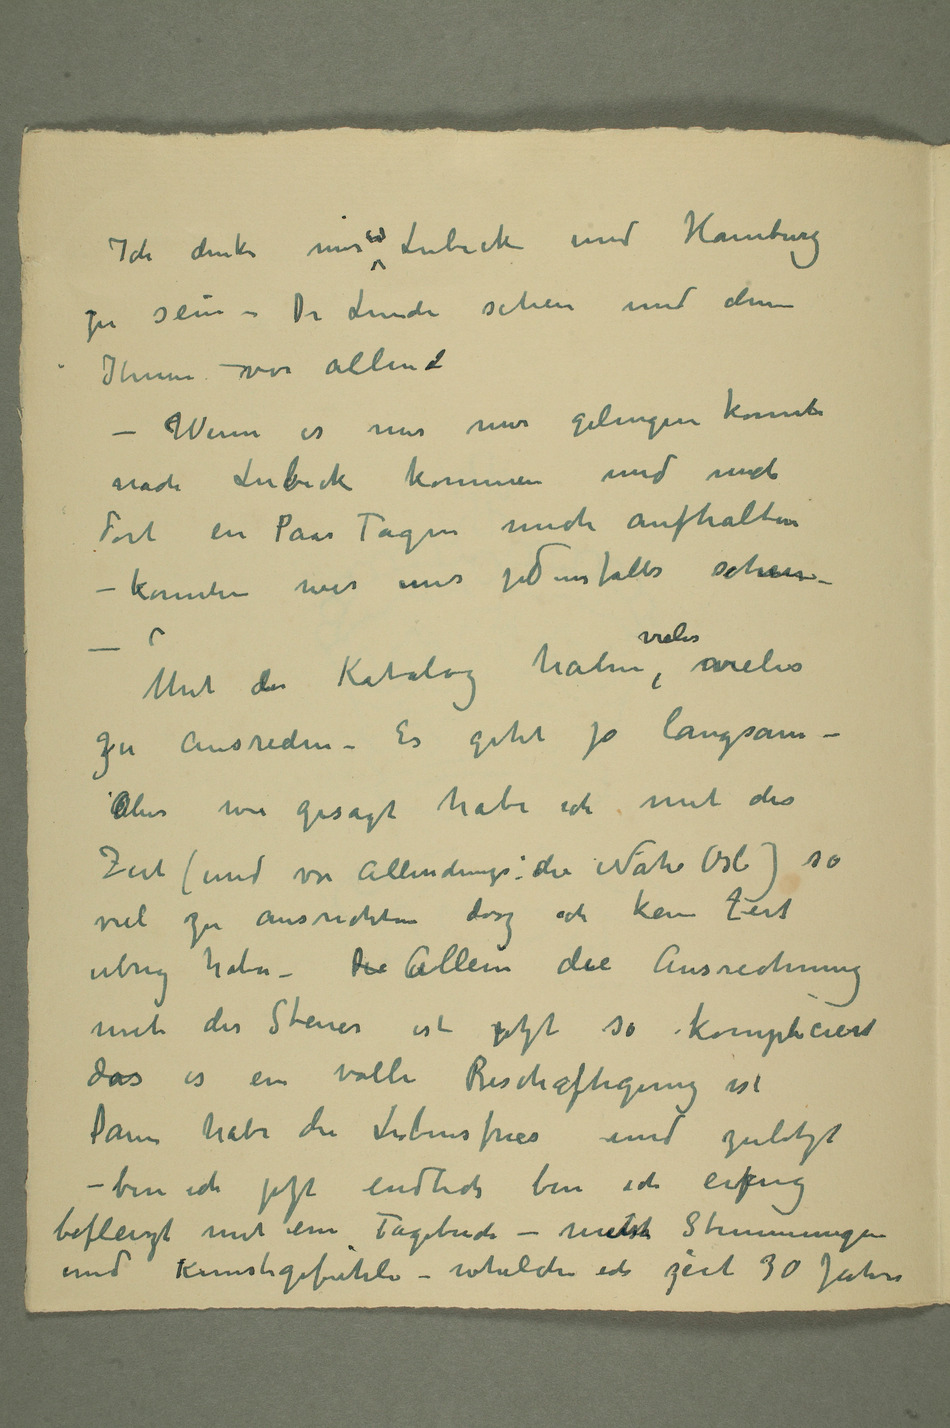 Ich denke mir in Lubeck und Hamburg
zu sein – Dr Linde sehen und dann
Ihnen – vor allend
– Wenn es mir nur gelingen konnte
nach Lubeck kommen und mich
Dort en Paar Tagen mich aufhalten
– konnten wir uns jedensfalls sehen –
–
Mit der Katalog haben, vieles vieles
zu ausreden – Es geht jo langsam –
Aber wie gesagt habe ich mit der
Zeit (und vor Allendings: die Nähe Oslo) so
viel zu ausrichten dasz ich kein Zeit
ubrig habe – Die Allein die Ausrechnung
mit der Steuer ist jetzt so kompliciert
das es ein volle Beschäftigung ist
Dann habe die Lebensfries und zuletzt
– bin ich jetzt endlich bin ich eifrig
befleizt mit ein Tagebuch – meist Stimmungen
und Kunstgefühle – whelche ich zeit 30 Jahre